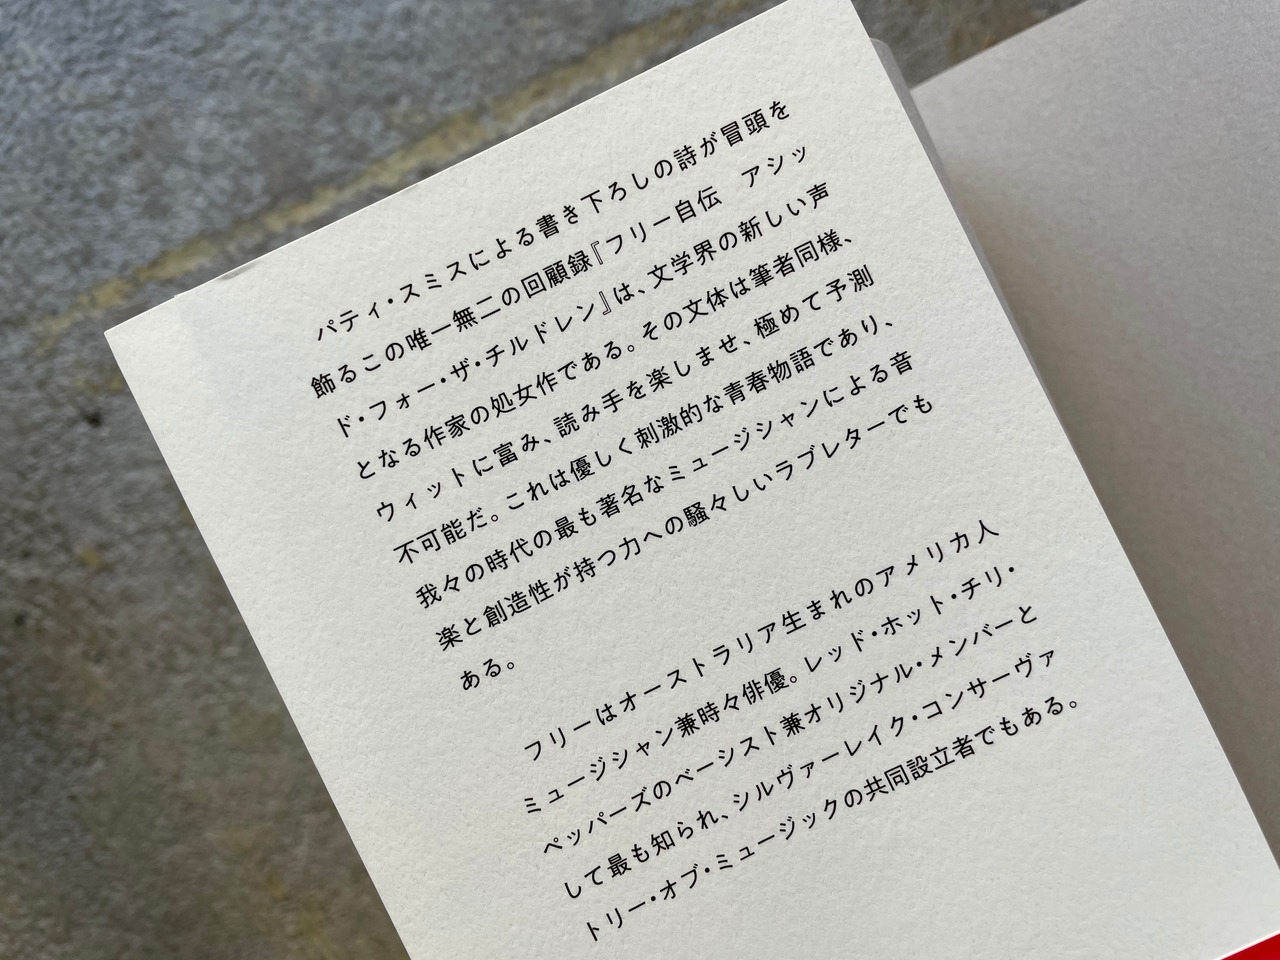 パティ・スミスによる書き下ろしの詩が冒頭を
飾るこの唯一無二の回顧録『フリー自伝　アシッ
ド・フォー・ザ・チルドレン』は、文学界の新しい声
となる作家の処女作である。その文体は筆者同様、
ウィットに富み、読み手を楽しませ、極めて予測
不可能だ。これは優しく刺激的な青春物語であり、
我々の時代の最も著名なミュージシャンによる音
楽と創造性が持つ力への騒々しいラブレターでも
ある。
フリーはオーストラリア生まれのアメリカ人
ミュージシャン兼時々俳優。レッド・ホット・チリ・
ペッパーズのベーシスト兼オリジナル・メンバーと
して最も知られ、シルヴァーレイク・コンサーヴァ
トリー・オブ・ミュージックの共同設立者でもある。